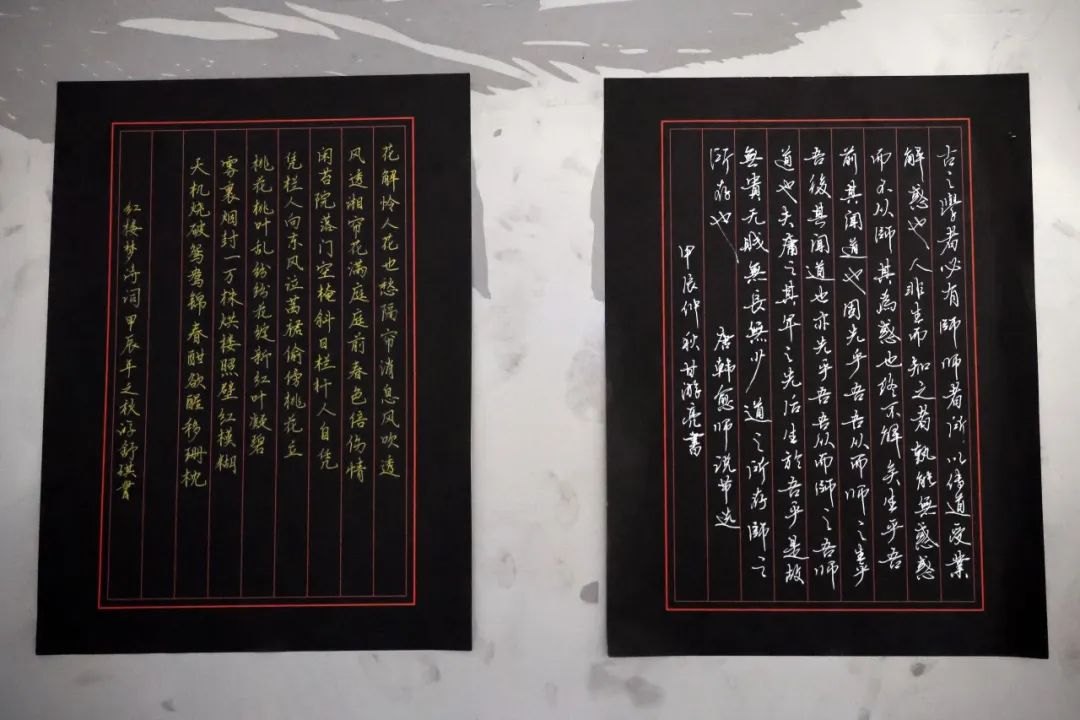 花解怜人花也愁隔帘消息风吹透
风透湘帘花满庭庭前春色倍伤情
闲苔院落门空掩斜日栏杆人自凭
凭栏人向东风泣茜裙偷傍桃花立
桃花桃叶乱纷纷花绽新红叶凝碧
雾裹烟封一万株烘楼照壁红模糊
天机烧破鸳鸯锦春酣欲醒移珊枕
红楼梦诗词甲辰年之秋舒琪書
古之學者必有師師者所以传道受業
解惑也人非生而知之者孰能無惑惑
而不从師其為惑也终不解矣生乎吾
前其聞道也固先乎吾吾从而师之生乎
吾後其聞道也亦先乎吾吾从而師之吾师
道也夫庸之其年之先后生於吾乎是故
無貴无贱無長無少道之所存師之
所存也 唐韓愈师说节选
甲辰仲秋甘游亮書